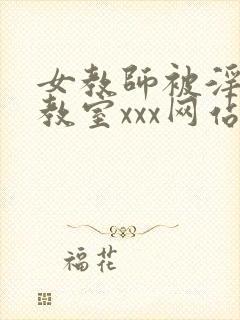 女教師被淫
教室xxx网佔
福花